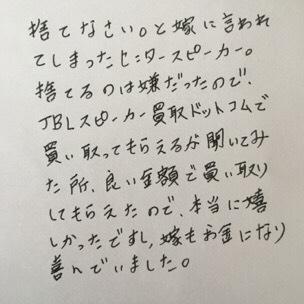 捨てなさい。と嫁に言われ
てしまったセンタースピーカー。
捨てるのは嫌だったので、
JBLスピーカー買取ドットコムで
買い取ってもらえるが聞いてみ
た所、良い金額で買い取り
してもらえたので、本当に嬉
しかったですし、嫁もお金になり
喜んでいました。